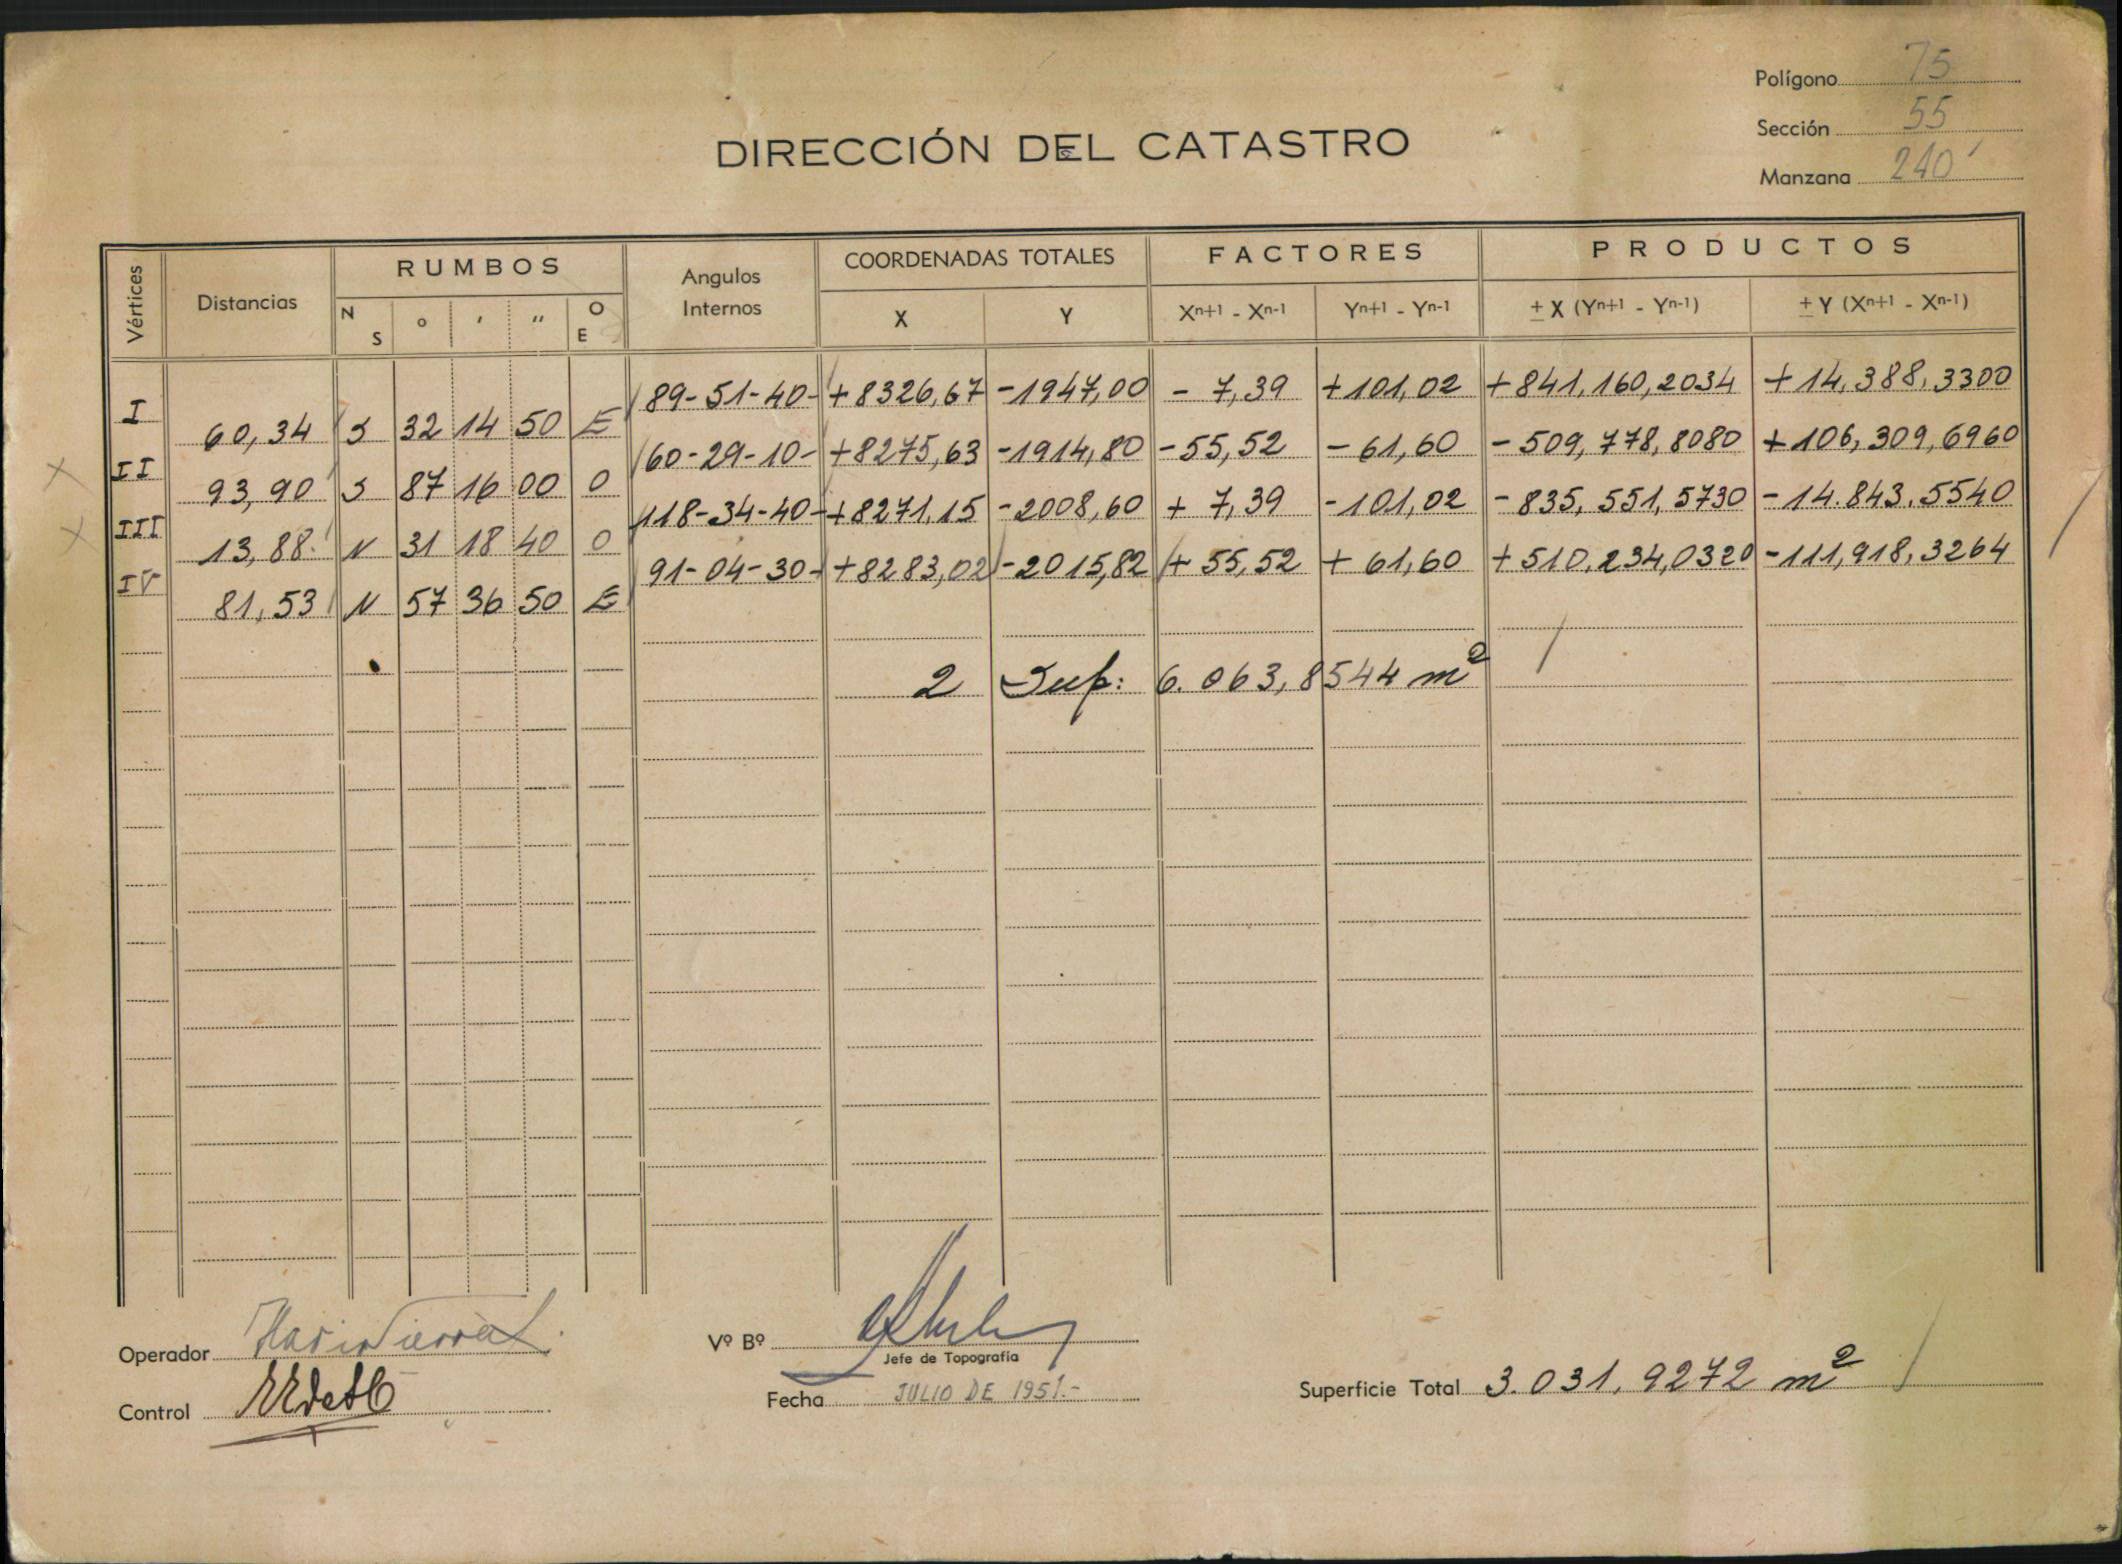 Polígono 75
Sección 55
Manzana 240
DIRECCIÓN DEL CATASTRO
Vértices Distancias RUMBOS N S o ' " O E Angulos Internos COORDENADAS TOTALES X Y FACTORES Xn+1 - Xn-1 Yn+1 - Yn-1 PRODUCTOS ± X (Yn+1 - Yn-1) ± Y (Xn+1 - Xn-1)
I 89-51-40- +8326,67 -1947,00 - 7,39 +101,02 +841,160,2034 +14,388,3300
60,34 S 32 14 50 E
II 60-29-10- +8275,63 -1914,80 -55,52 -61,60 -509,778,8080 +106,309,6960
93,90 S 87 16 00 O
III 118-34-40- +8271,15 -2008,60 + 7,39 -101,02 -835,551,5730 -14.843,5540
13,88 N 31 18 40 O
IV 91-04-30- +8283,02 -2015,82 + 55,52 + 61,60 +510,234,0320 -111,918,3264
81,53 N 57 36 50 E
2 Sup: 6.063,8544 m²
Operador
Control
Vº Bº
Jefe de Topografía
Fecha JULIO DE 1951.-
Superficie Total 3.031,9272 m²